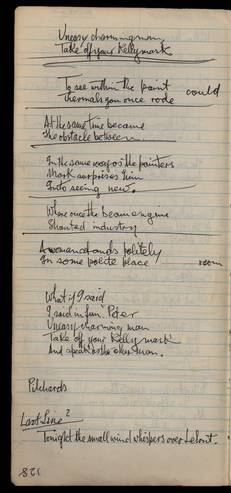 Uneasy charming man,
Take off your Kelly mask
To see within the paint could
thermals you once rode
At the same time became
The obstacle between
In the same way as the painter's
Mark surprises him
Into seeing new.
Where once the beam engine
Shouted industry
politely
In some polite place room
What if I said
I said in fun. Peter
Uneasy charming man
Take off your Kelly mask
And speak as the other man.
Pilchards
Last Line?
Tonight the small wind whispers over Lelant.
128